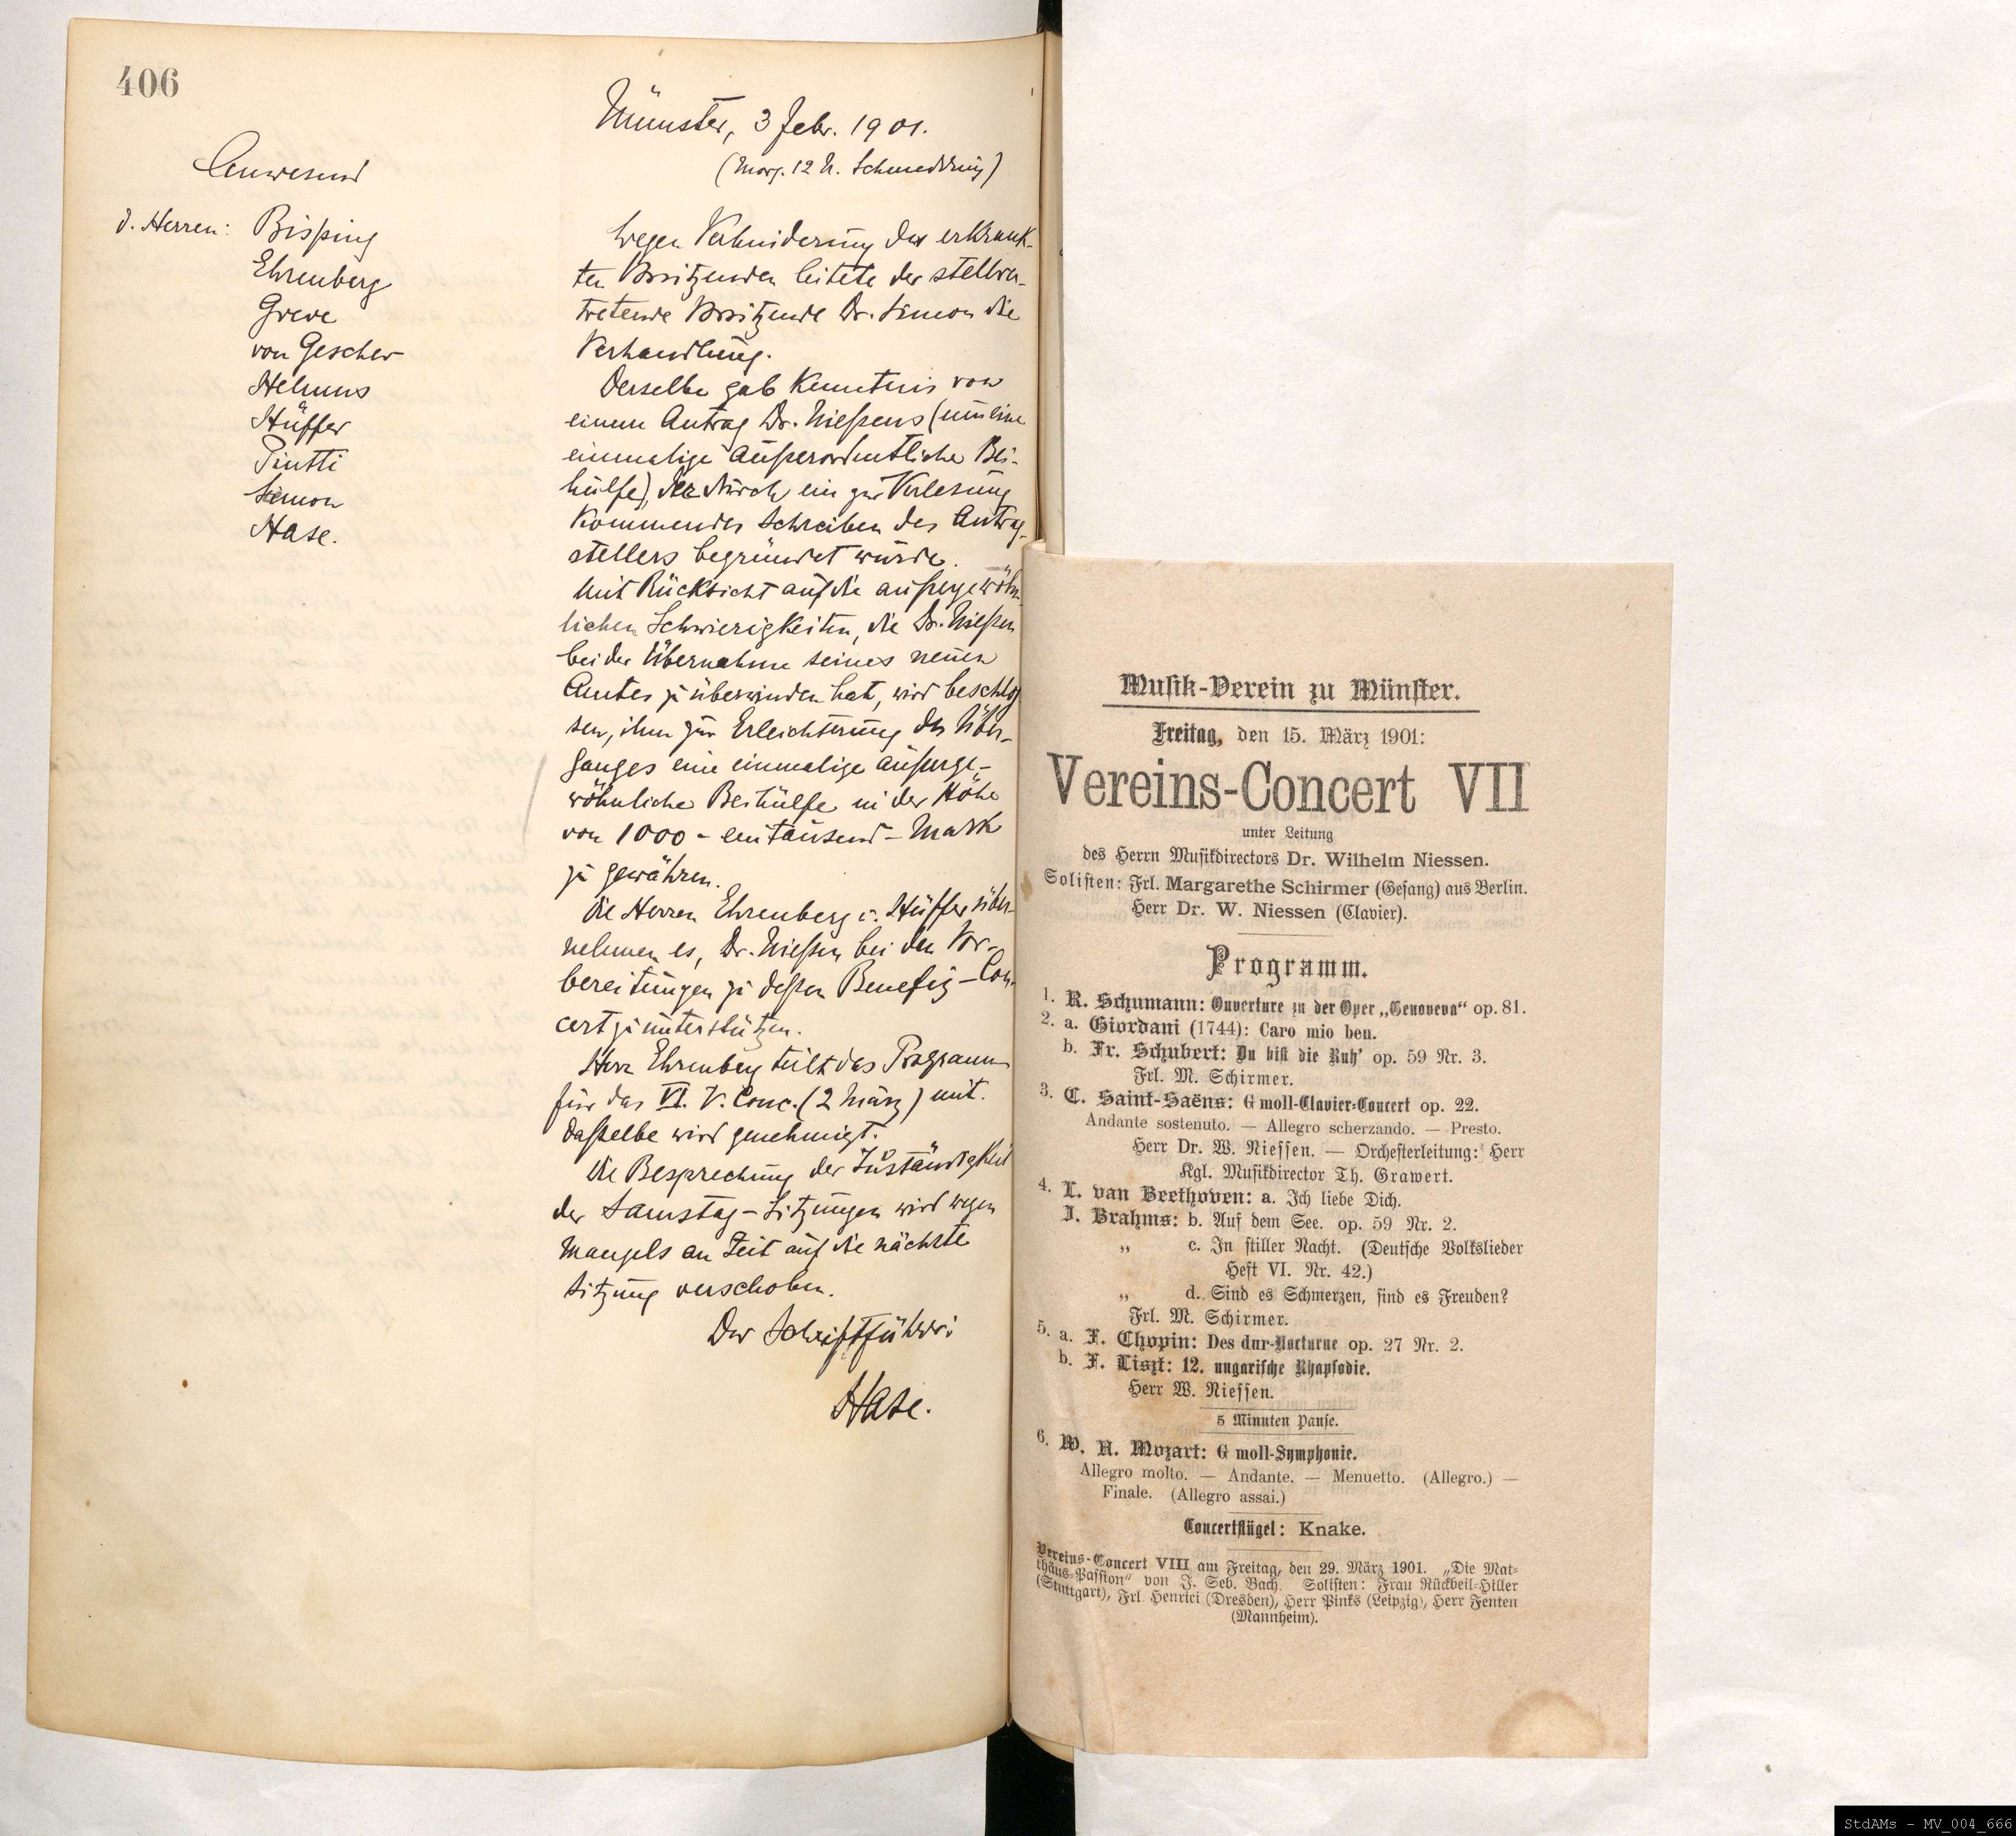 406
Münster, 3 Febr. 1901.
(Morg. 12 U. Schmedding)
Anwesend
d. Herren: Bisping
Ehrenberg
Greve
von Gescher
Helmus
Hüffer
Piutti
Simon
Hase.
Wegen Verhinderung des erkrank-
ten Vorsitzenden leitete der stellver-
tretende Vorsitzende Dr. Simon die
Verhandlung.
Derselbe gab Kenntnis von
einem Antrag Dr. Nießens (um eine
einmalige außerordentliche Bei-
hülfe), der durch ein zur Verlesung
kommendes Schreiben des Antrag-
stellers begründet wurde.
Mit Rücksicht auf die außergewöhn-
lichen Schwierigkeiten, die Dr. Nießen
bei der Übernahme seines neuen
Amtes zu überwinden hat, wird beschlos-
sen, ihm zur Erleichterung des Über-
ganges eine einmalige außerge-
wöhnliche Beihülfe in der Höhe
von 1000 - eintausend - Mark
zu gewähren.
Die Herren Ehrenberg u. Hüffer über-
nehmen es, Dr. Nießen bei den Vor-
bereitungen zu dessen Benefiz-Con-
cert zu unterstützen.
Herr Ehrenberg teilt das Programm
für das VI. V. Conc. (2 März) mit.
Dasselbe wird genehmigt.
Die Besprechung der Zuständigkeit
der Samstag-Sitzungen wird wegen
Mangels an Zeit auf die nächste
Sitzung verschoben.
Der Schriftführer:
Hase.
Musik-Verein zu Münster.
Freitag, den 15. März 1901:
Vereins-Concert VII
unter Leitung
des Herrn Musikdirectors Dr. Wilhelm Niessen.
Solisten: Frl. Margarethe Schirmer (Gesang) aus Berlin.
Herr Dr. W. Niessen (Clavier).
Programm.
1. R. Schumann: Ouverture zu der Oper „Genoveva“ op. 81.
2. a. Giordani (1744): Caro mio ben.
b. Fr. Schubert: Du bist die Ruh' op. 59 Nr. 3.
Frl. M. Schirmer.
3. C. Saint-Saëns: G moll-Clavier-Concert op. 22.
Andante sostenuto. — Allegro scherzando. — Presto.
Herr Dr. W. Niessen. — Orchesterleitung: Herr
Kgl. Musikdirector Th. Grawert.
4. L. van Beethoven: a. Ich liebe Dich.
J. Brahms: b. Auf dem See. op. 59 Nr. 2.
„ c. In stiller Nacht. (Deutsche Volkslieder
Heft VI. Nr. 42.)
„ d. Sind es Schmerzen, sind es Freuden?
Frl. M. Schirmer.
5. a. F. Chopin: Des dur-Nocturne op. 27 Nr. 2.
b. F. Liszt: 12. ungarische Rhapsodie.
Herr W. Niessen.
5 Minuten Pause.
6. W. A. Mozart: G moll-Symphonie.
Allegro molto. — Andante. — Menuetto. (Allegro.) —
Finale. (Allegro assai.)
Concertflügel: Knake.
Vereins-Concert VIII am Freitag, den 29. März 1901. „Die Mat-
thäus-Passion“ von J. Seb. Bach. Solisten: Frau Rückbeil-Hiller
(Stuttgart), Frl. Henrici (Dresden), Herr Pinks (Leipzig), Herr Fenten
(Mannheim).
StdAMs - MV_004_666